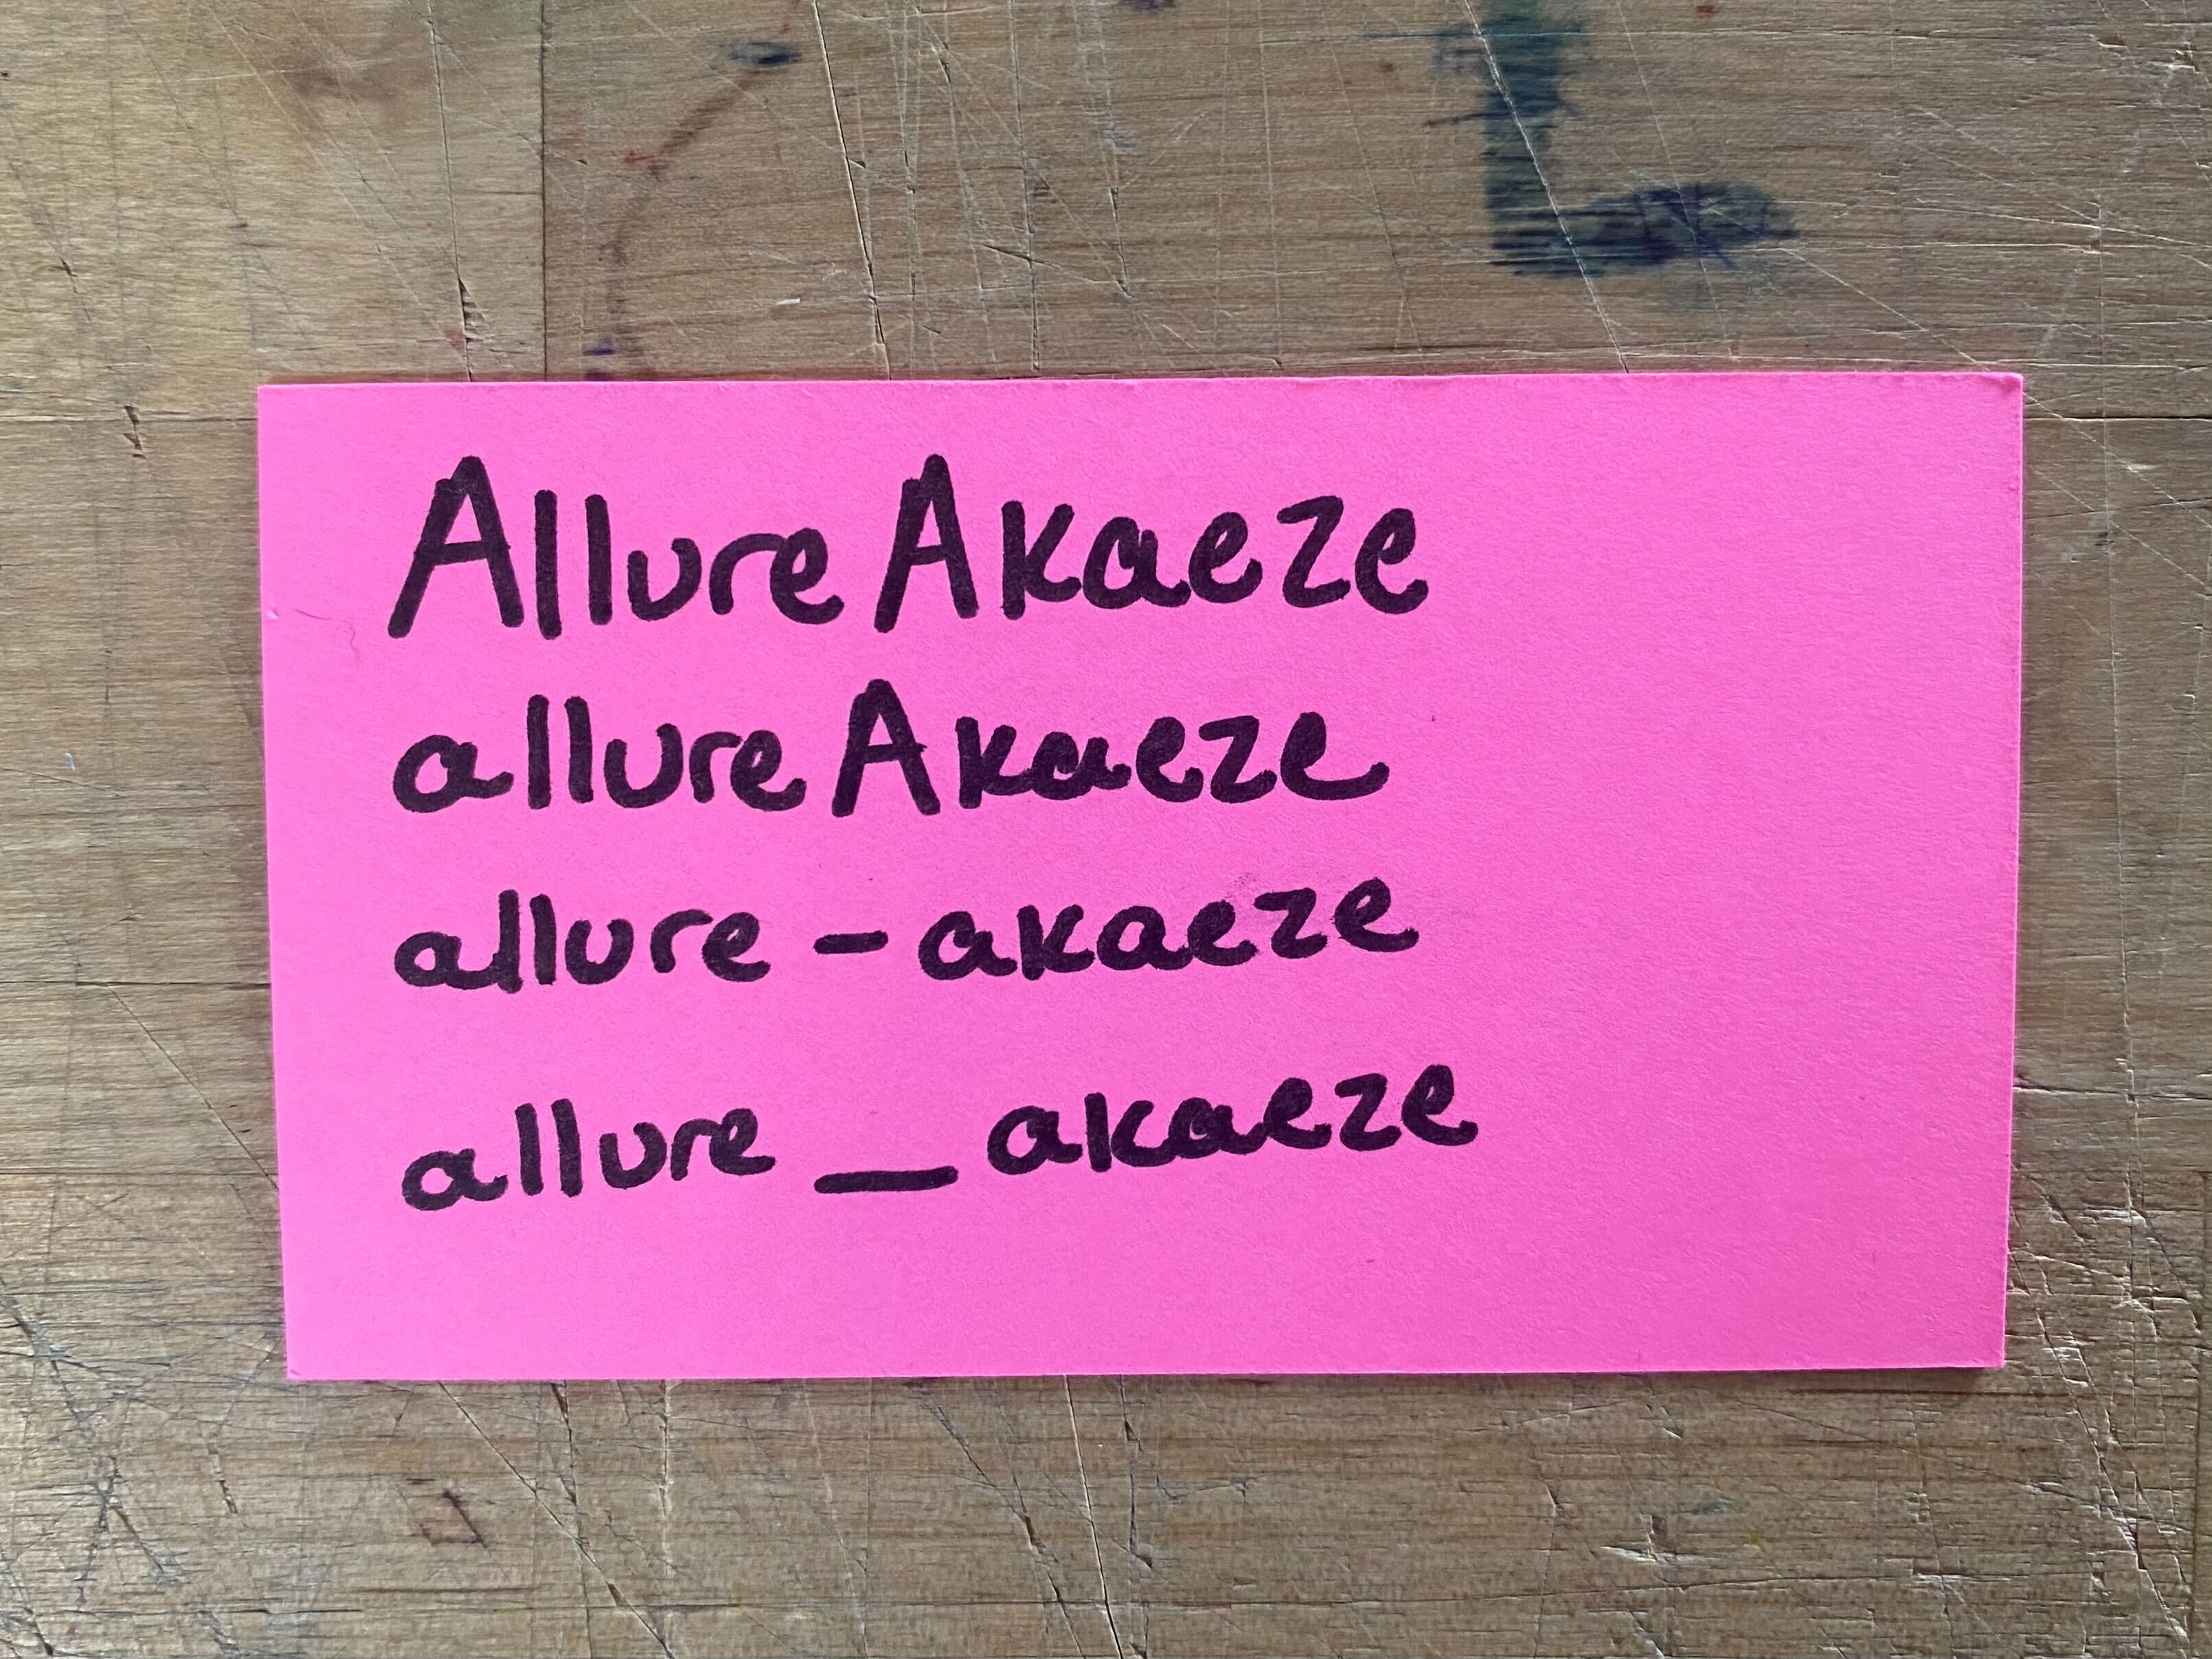 Allure Akaeze
allure Akaeze
allure - akaeze
allure _ akaeze